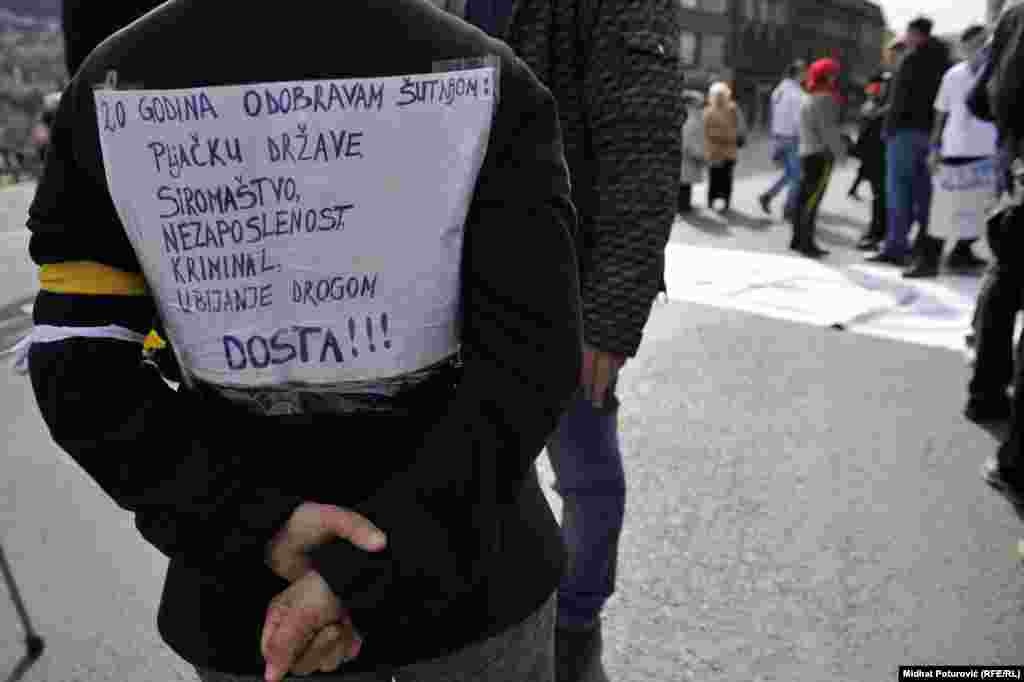 20 GODINA ODOBRAVAM ŠUTNJOM:
PLJAČKU DRŽAVE
SIROMAŠTVO,
NEZAPOSLENOST.
KRIMINAL.
UBIJANJE DROGOM
DOSTA!!!
Midhat Poturović (RFE/RL)